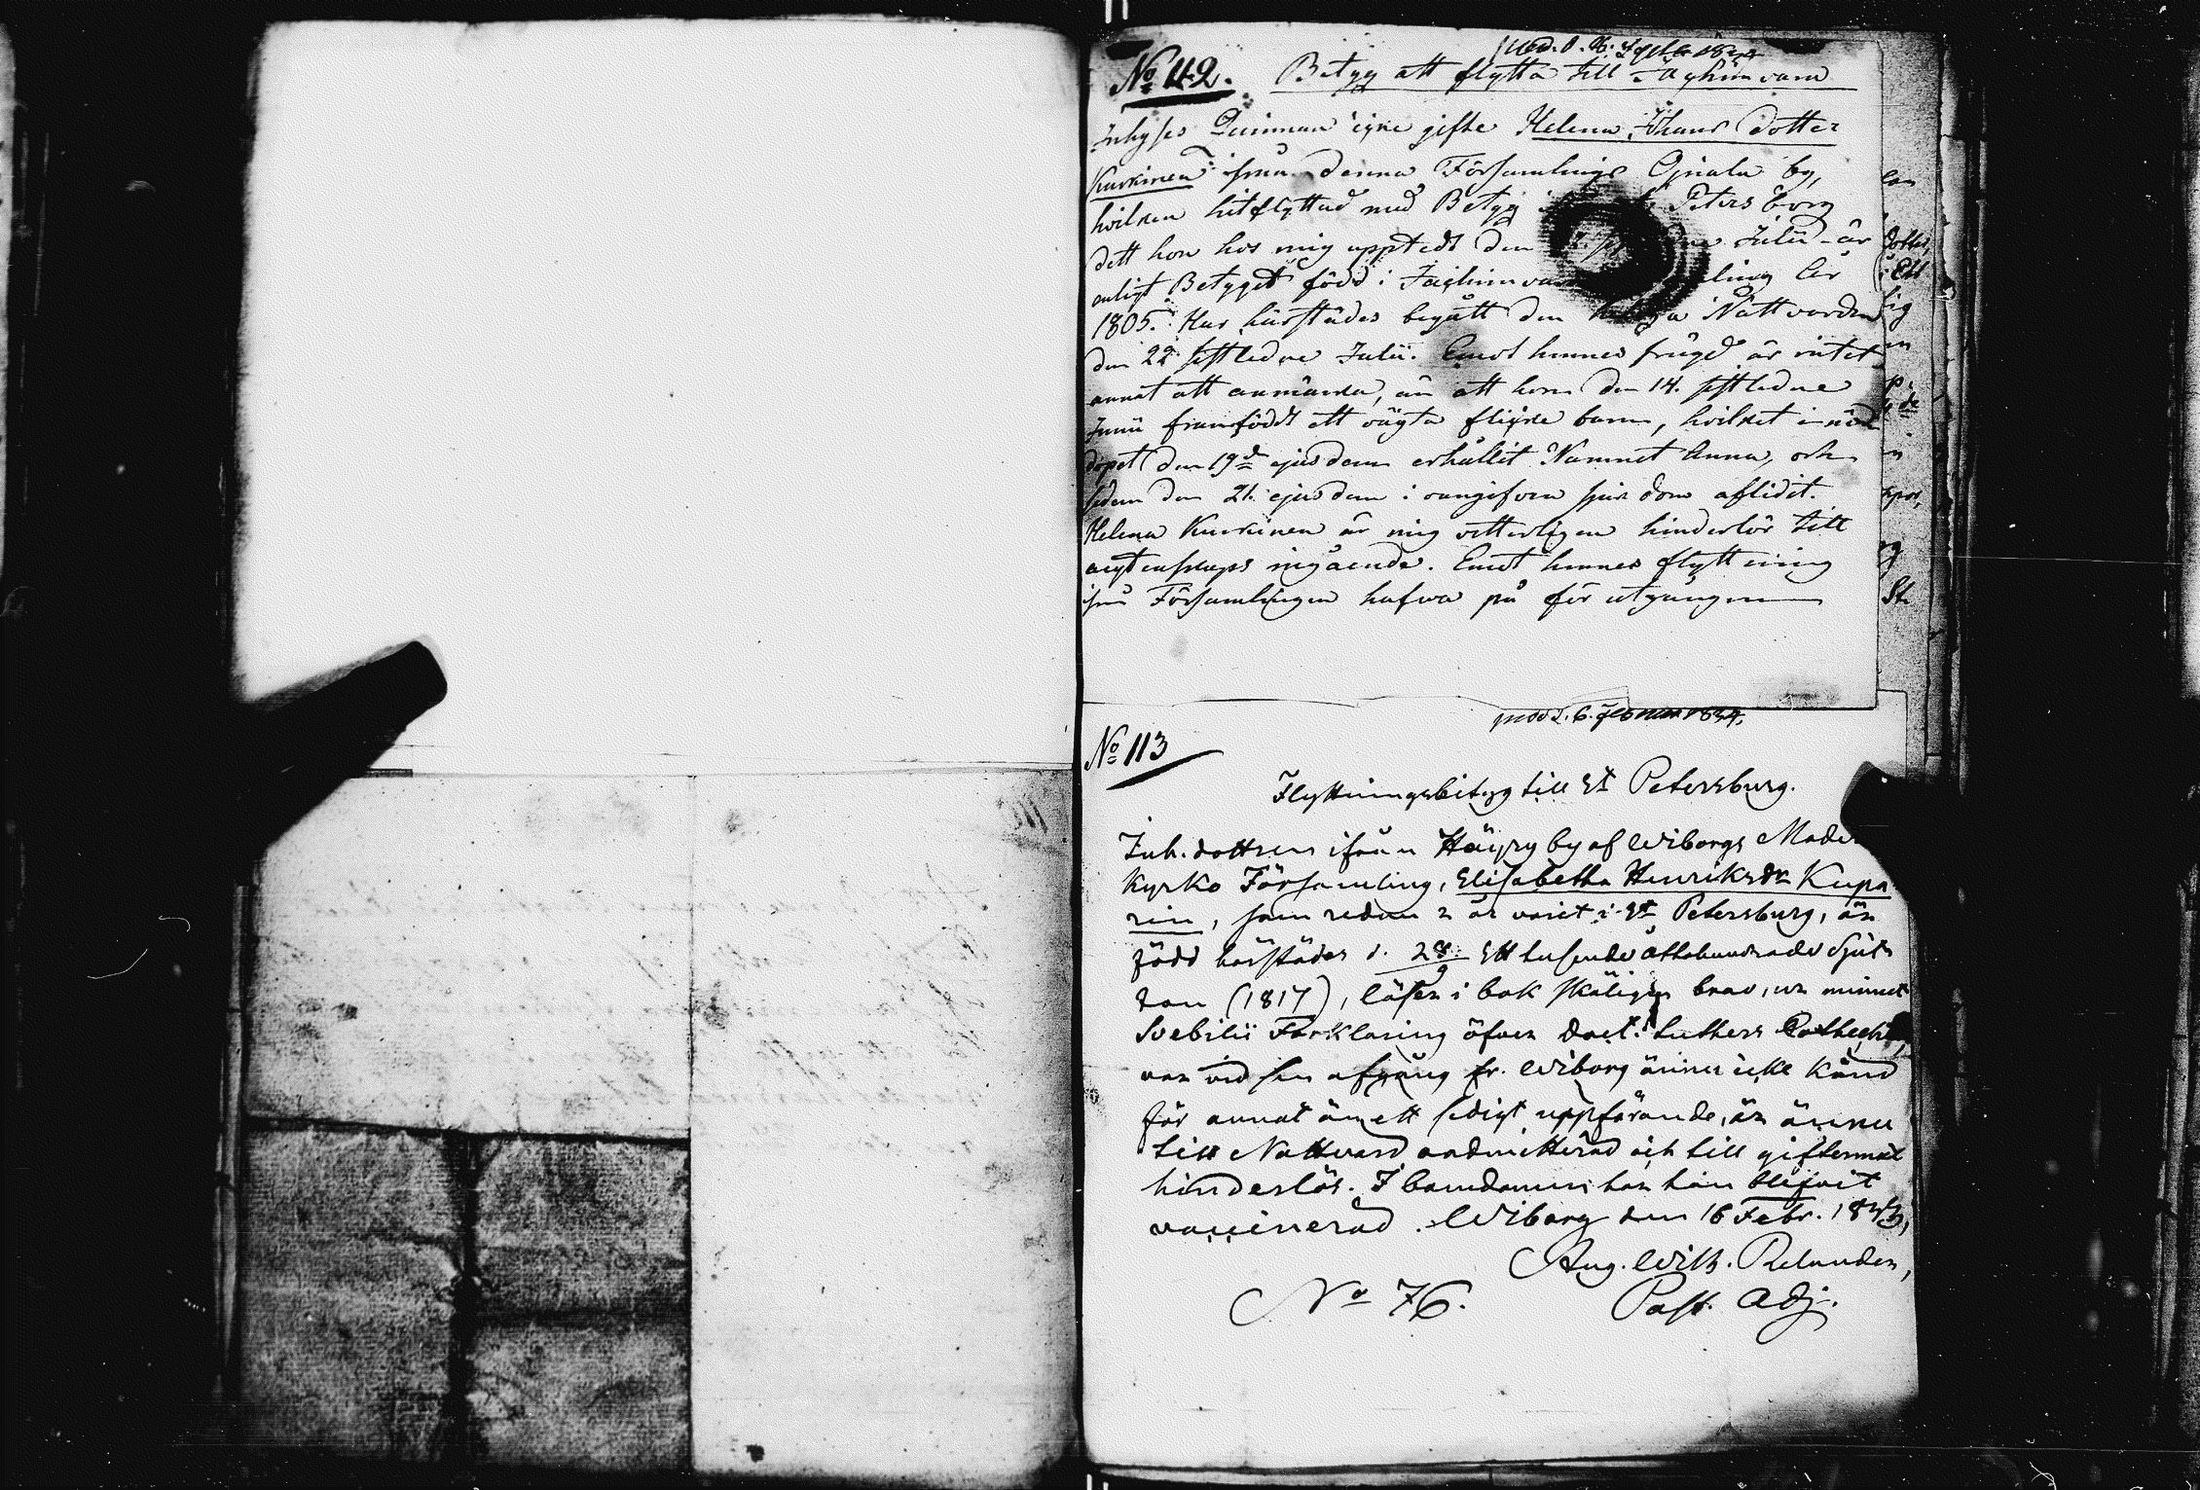 No 112.
Betyg att flytta till Jaakimvara
Inhyses Qvinnan ogifte Helena Johans dotter
Kurkinen ifrån denna Församlings Ojriala by,
hvilken hitflyttad med Betyg Petersborg
dett hon hos mig upptedt den Julii är
enligt Betyget född i Jackimvara år
1805. Har härstädes begått den Heliga Nattvarden
den 22 sistledne Julii. Emot hennes frägd är intet
annat att anmärka, än att hon den 14. sistledne
Junii framfödt ett oägta flicke barn, hvilket i nöd
döpet den 19de ejusdem erhållit Namnet Anna, och
sedan den 21. ejusdem i oangifven sjukdom aflidit.
Helena Kurkinen är mig vetterligen hinderlös till
ägtenskaps ingående. Emot hennes flyttning
ifrån Församlingen hafva på för utgången
No 113
Flyttningsbetyg till St Petersburg.
Inh. dottren ifrån Häyry by af Wiborgs Moder
Kyrko Församling, Elisabetha Henriksdr Kupa
rin, som redan 2 år varit i St Petersburg, är
född härstädes d. 28/9 Ett tusende åttahundrade Sjut
ton (1817), läser i bok skäligen brav, ur minnet
Svebilii Förklaring öfver Doct. Luthers Cateches,
var vid sin afgång fr. Wiborg ännu icke känd
för annat än ett sedigt uppförande, är ännu
till Nattvard oadmitterad och till giftermål
hinderlös. I barndomen har hon blifvit
vaccinerad. Wiborg den 16 Febr. 1833,
Aug. Wilh. Relander,
No 76.
Past. Adj.